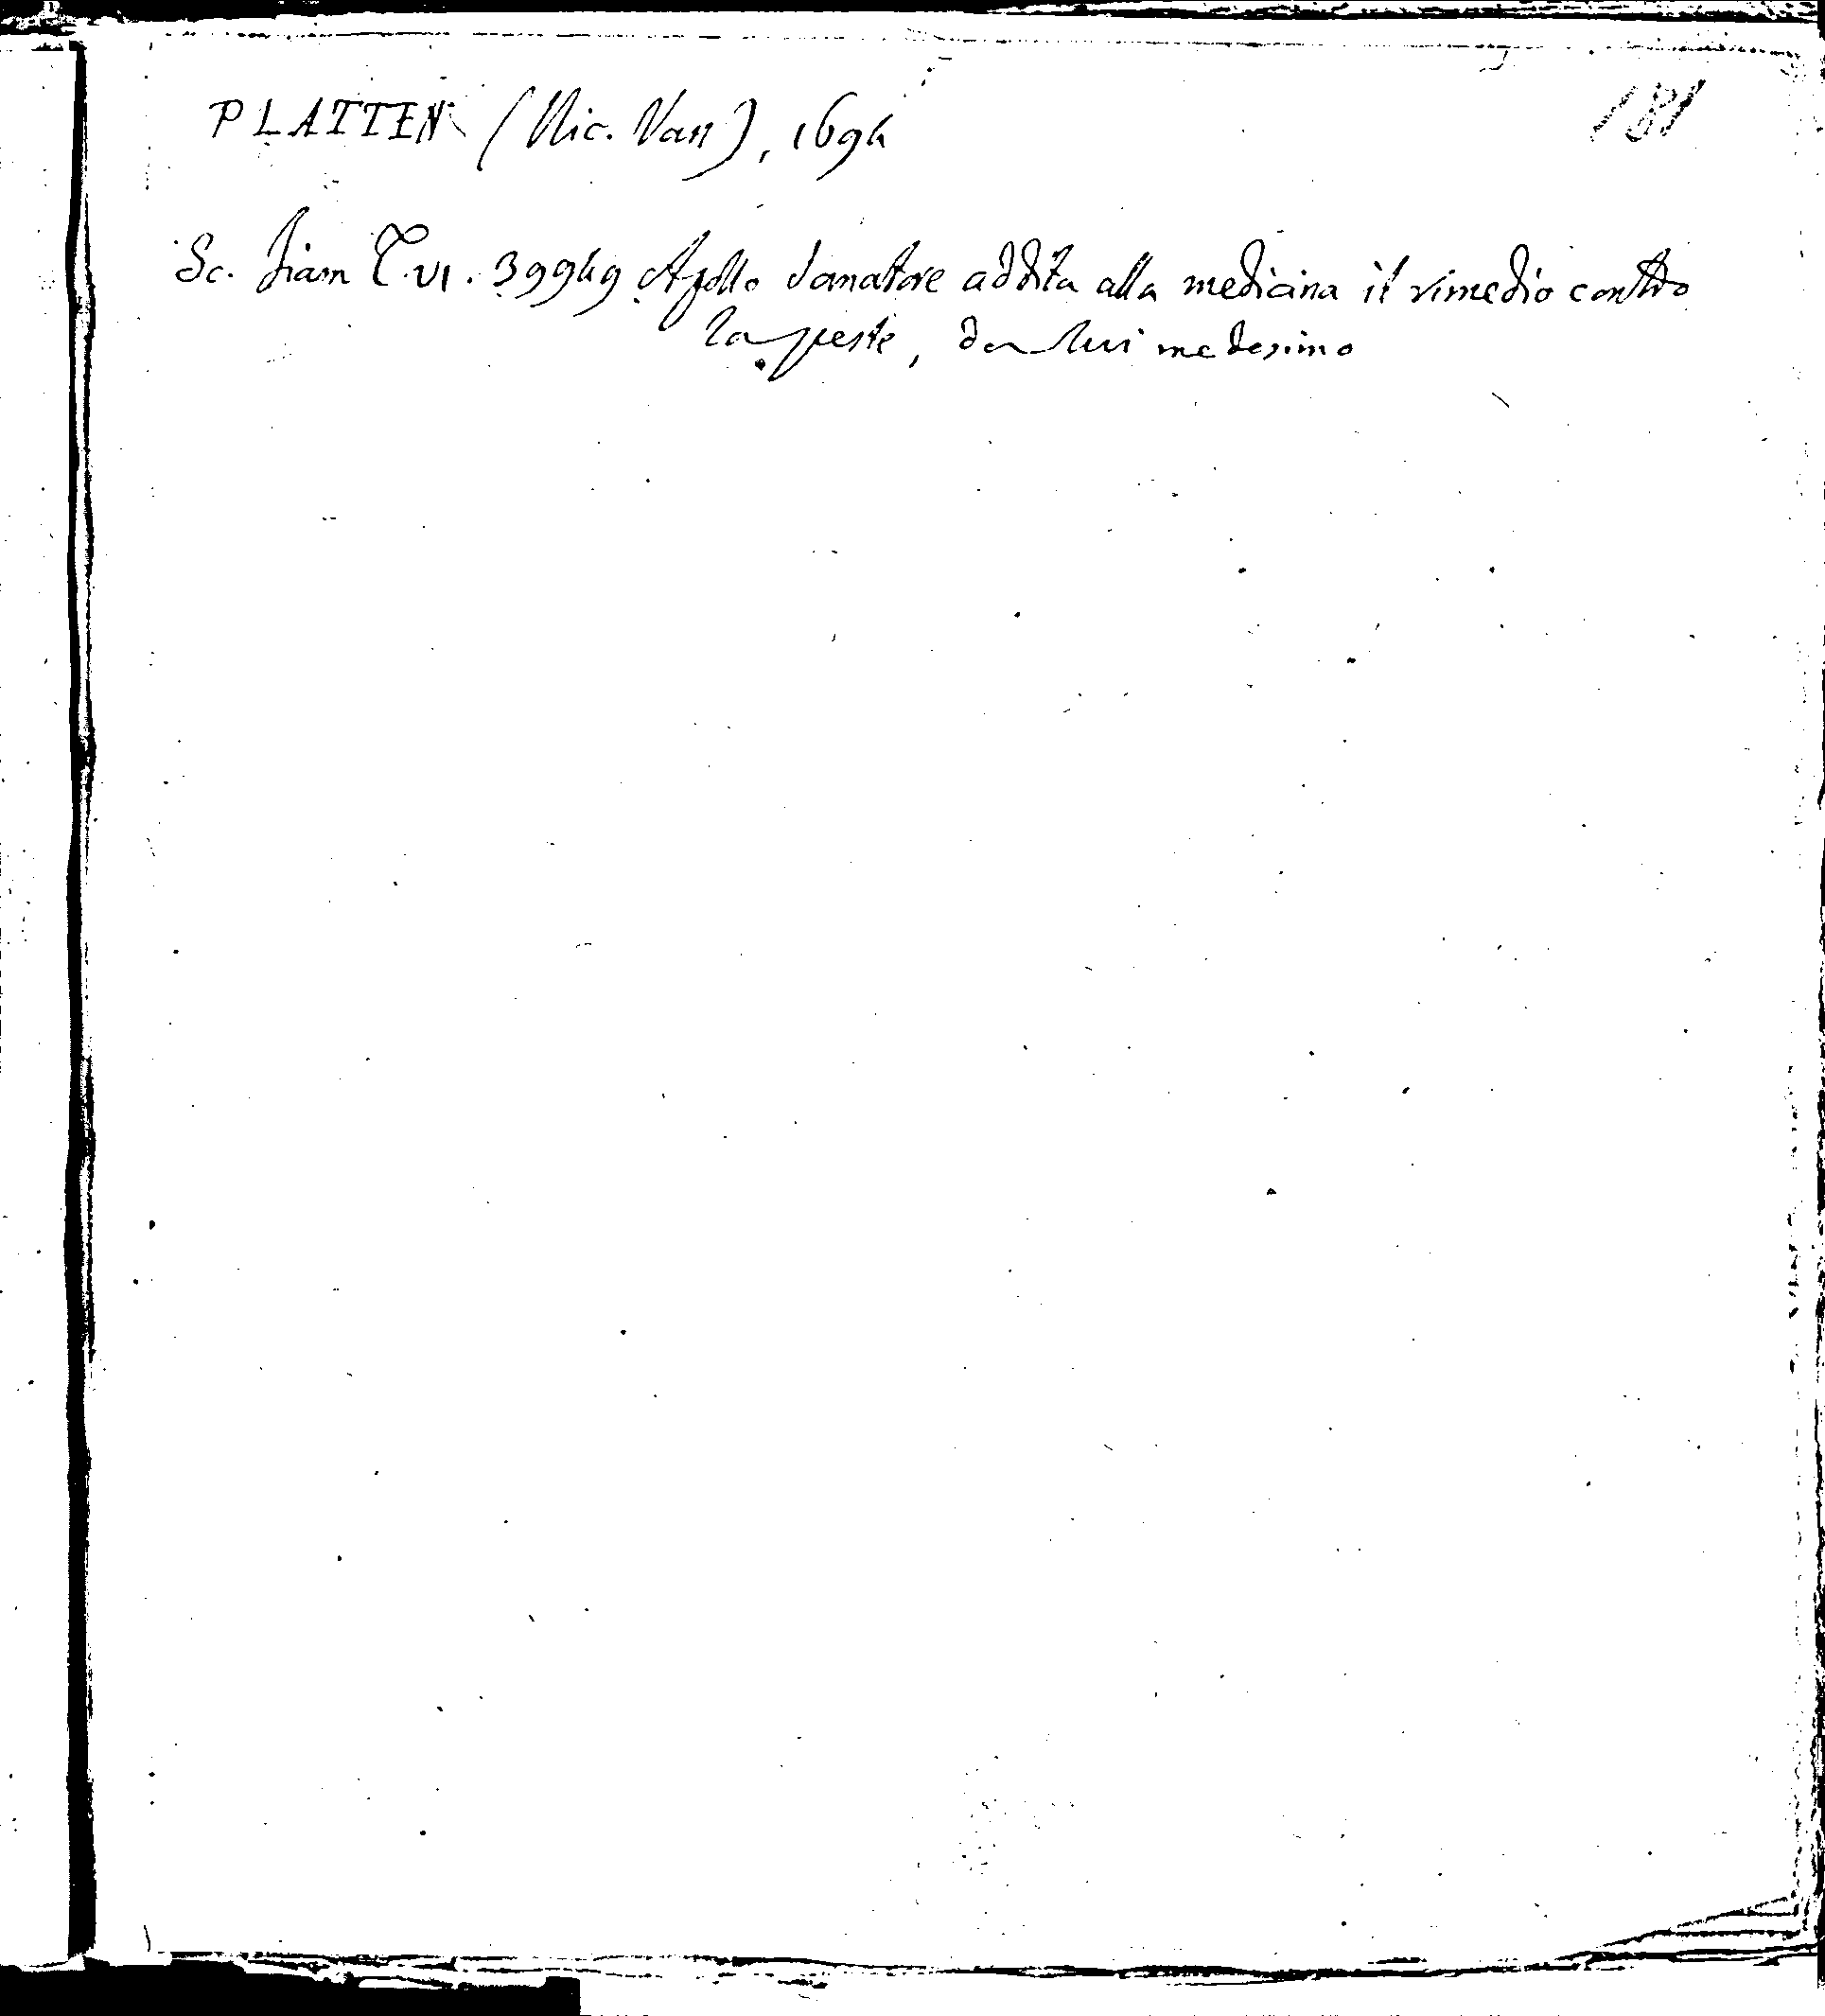 PLATTEN (Nic. Van), 1694
181
Sc. Siam T. VI. 39949 Apollo sanatore addita alla medicina il rimedio contro
la peste, da lui medesimo